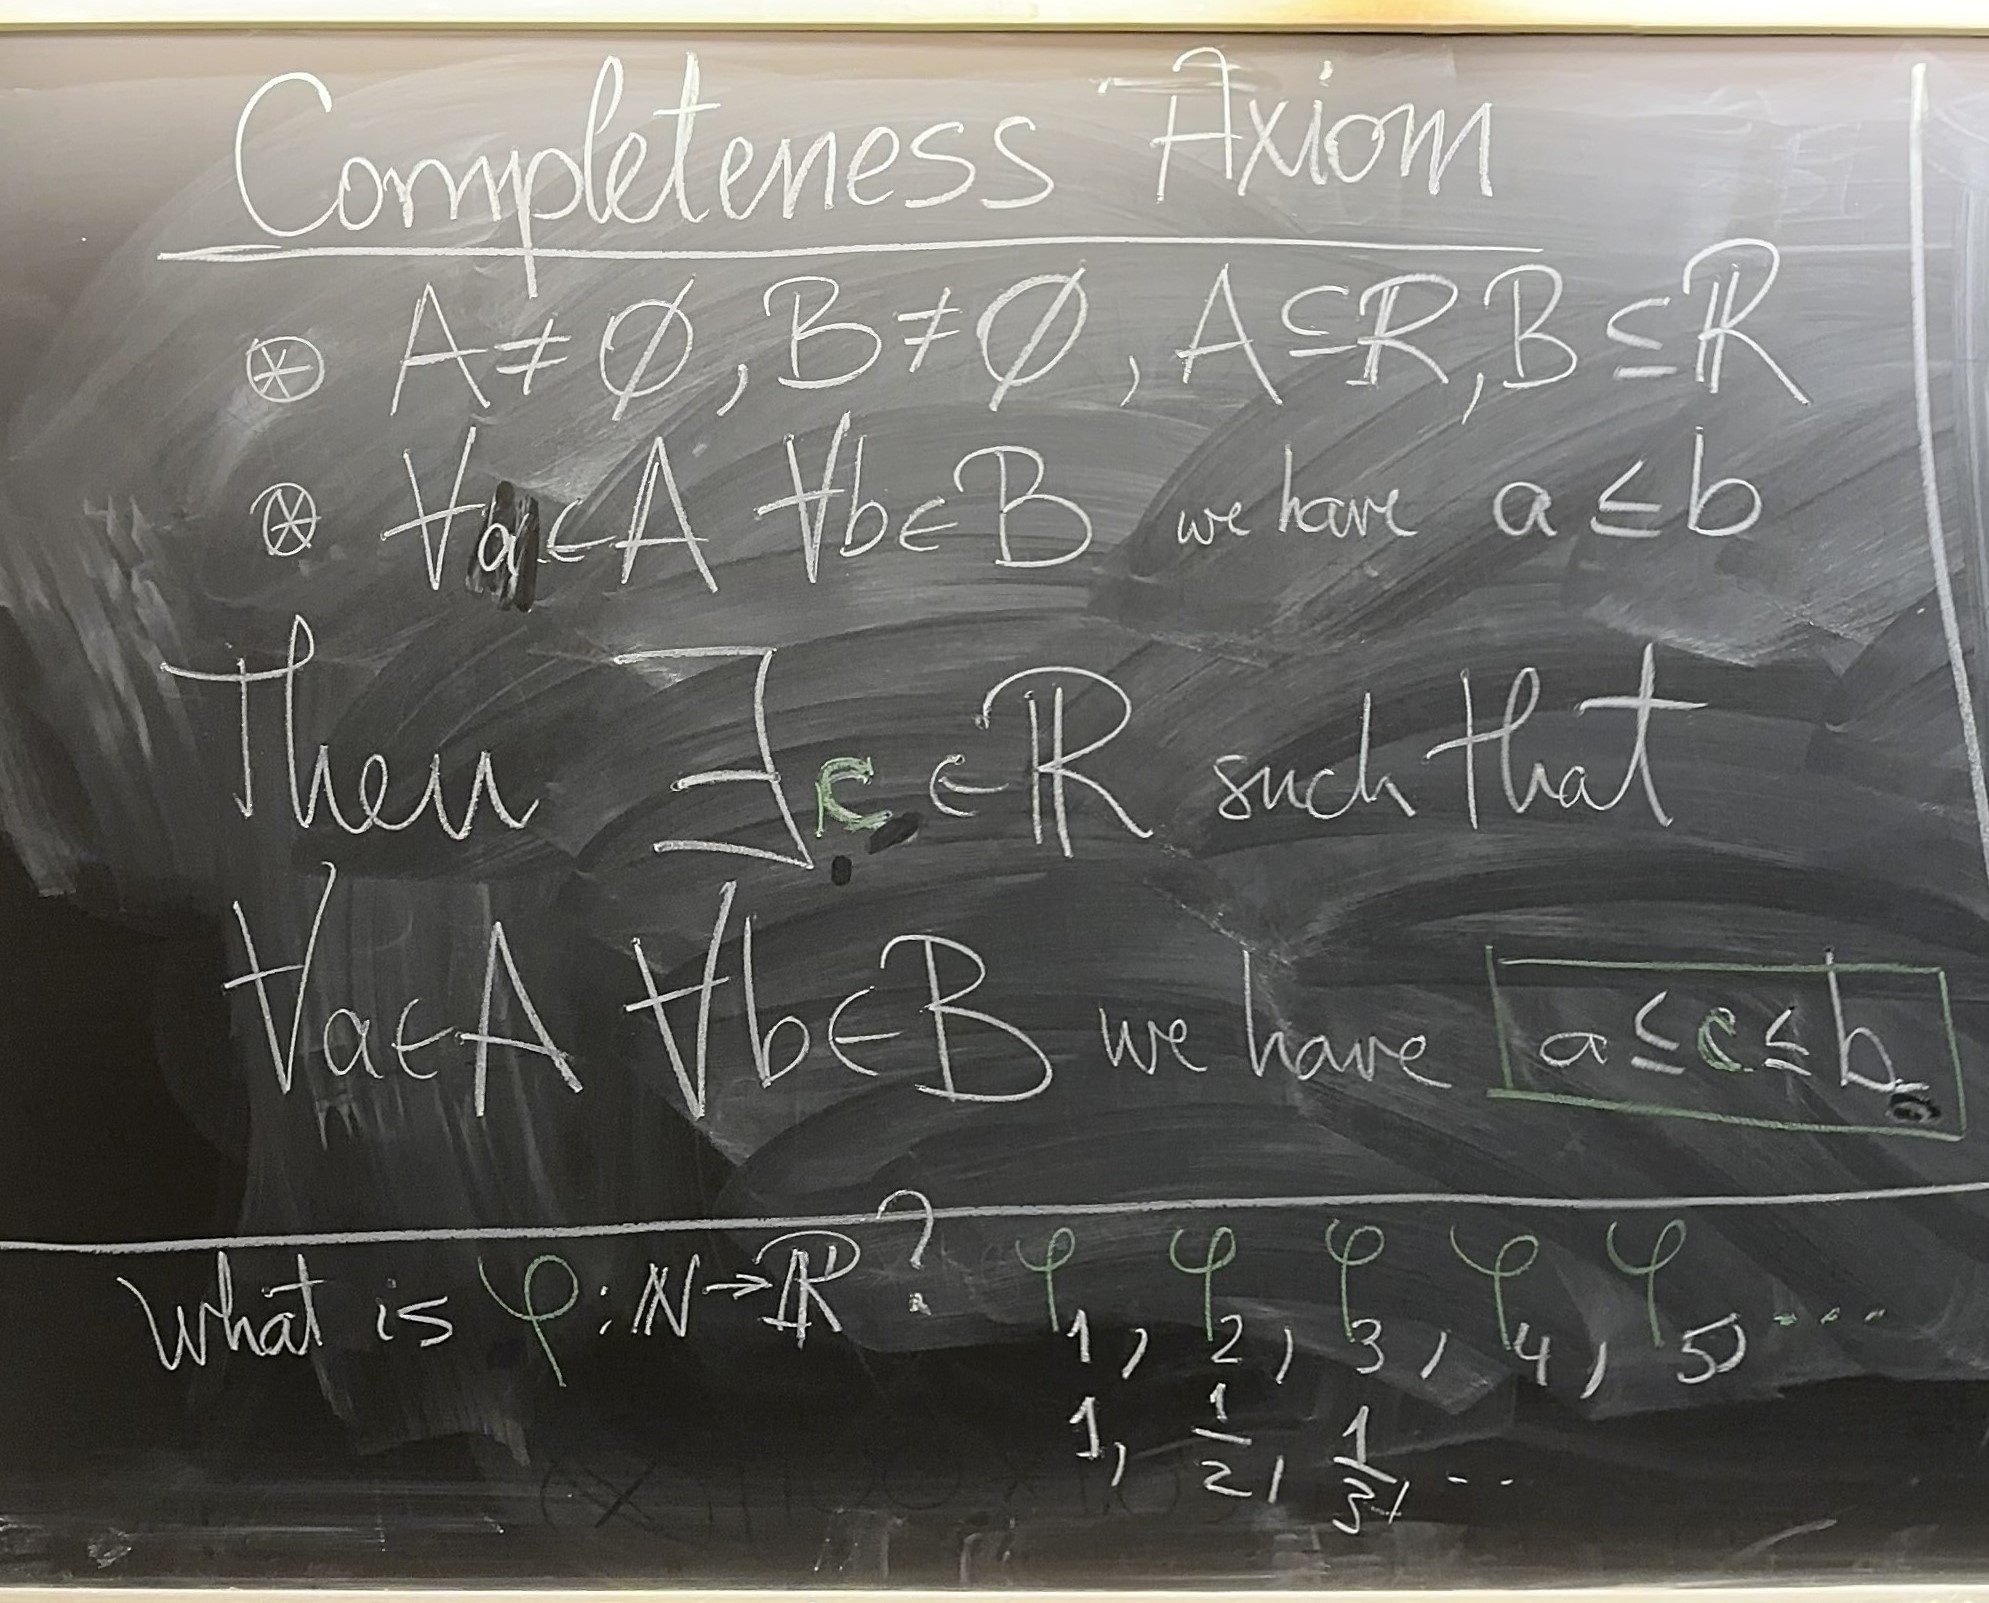 Completeness Axiom
⊛ A ≠ ∅, B ≠ ∅, A ⊆ ℝ, B ⊆ ℝ
⊛ ∀a∈A ∀b∈B we have a ≤ b
Then ∃c∈ℝ such that
∀a∈A ∀b∈B we have a ≤ c ≤ b
What is φ: ℕ→ℝ? φ₁, φ₂, φ₃, φ₄, φ₅, ...
1, 1/2, 1/3, ...